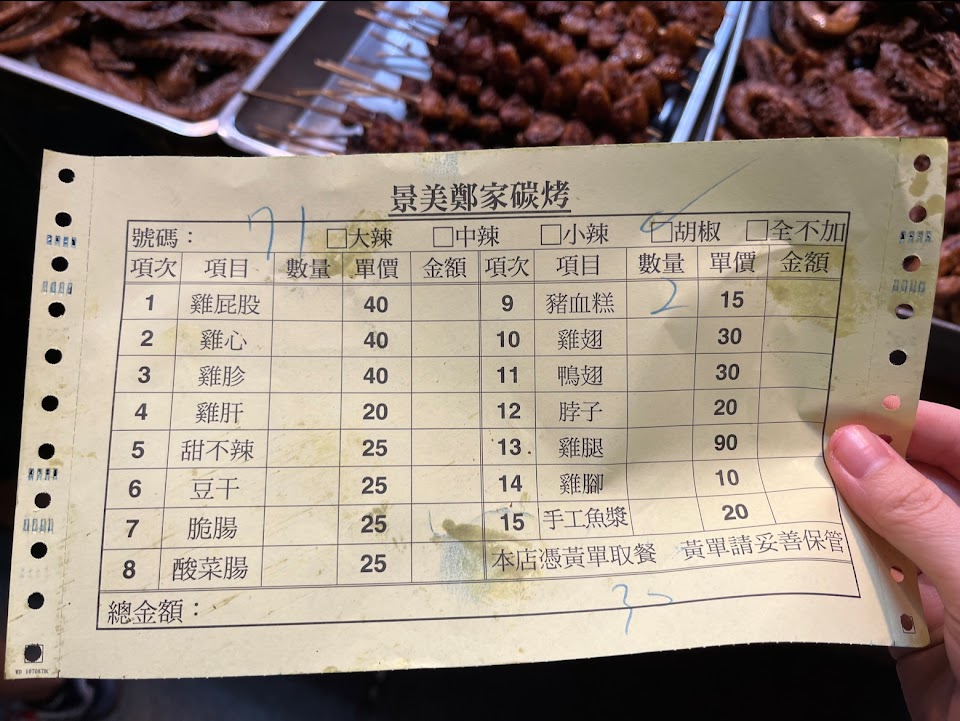 景美鄭家碳烤
號碼： 71 □大辣 □中辣 □小辣 □胡椒 □全不加
項次 項目 數量 單價 金額 項次 項目 數量 單價 金額
1 雞屁股 40 9 豬血糕 2 15
2 雞心 40 10 雞翅 30
3 雞胗 40 11 鴨翅 30
4 雞肝 20 12 脖子 20
5 甜不辣 25 13 雞腿 90
6 豆干 25 14 雞腳 10
7 脆腸 25 15 手工魚漿 20
8 酸菜腸 25 本店憑黃單取餐 黃單請妥善保管
總金額： 30